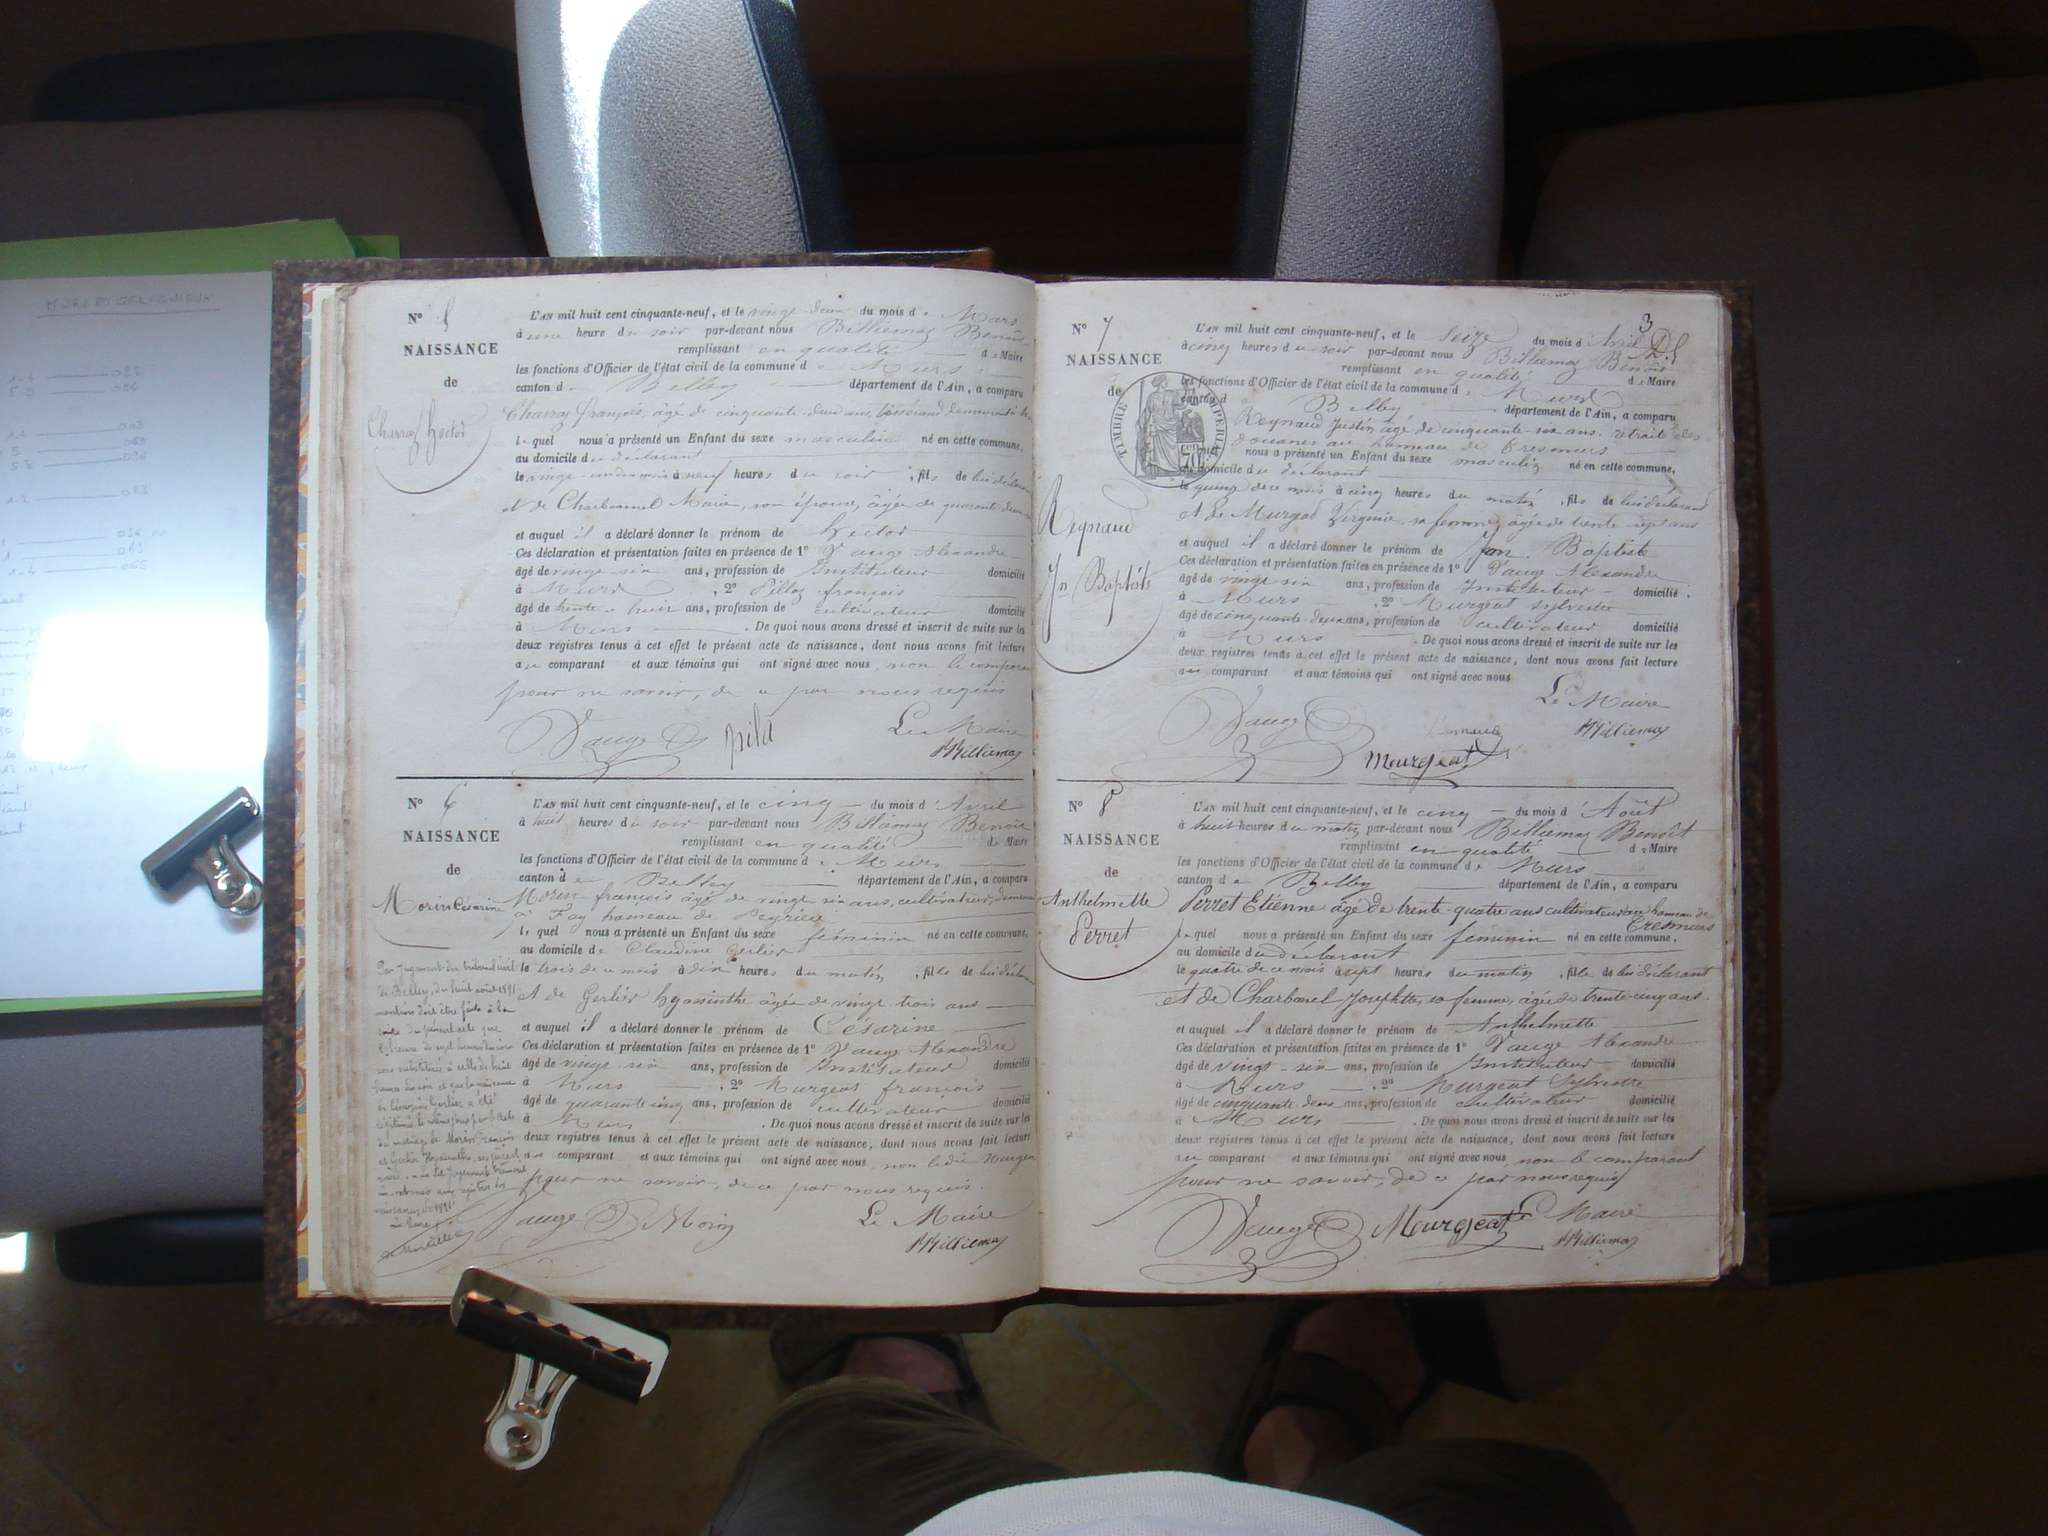 MURS ET GELIGNIEUX
N° 5
NAISSANCE
de
Charroz Hector
L'AN mil huit cent cinquante-neuf, et le vingt deux du mois de Mars
à une heure du soir par-devant nous Billiemaz Benoît
remplissant en qualité de Maire
les fonctions d'Officier de l'état civil de la commune de Murs
canton de Belley département de l'Ain, a comparu
Charroz françois, âgé de cinquante-deux ans, tisserand demeurant à
lequel nous a présenté un Enfant du sexe masculin né en cette commune,
au domicile du déclarant
le vingt-un du mois à neuf heures du soir, fils de lui déclarant
et de Charbonnel Marie, son épouse, âgée de quarante-deux
et auquel il a déclaré donner le prénom de Hector
Ces déclaration et présentation faites en présence de 1° Vauge Alexandre
âgé de vingt-six ans, profession de Instituteur domicilié
à Murs, 2° Pilloz françois
âgé de trente-huit ans, profession de cultivateur domicilié
à Murs. De quoi nous avons dressé et inscrit de suite sur les
deux registres tenus à cet effet le présent acte de naissance, dont nous avons fait lecture
au comparant et aux témoins qui ont signé avec nous, non le comparant
pour ne savoir, de ce par nous requis
Vauge Le Maire
BBilliemaz
N° 6
NAISSANCE
de
Morin Césarine
L'AN mil huit cent cinquante-neuf, et le cinq du mois d'Avril
à huit heures du soir par-devant nous Billiemaz Benoît
remplissant en qualité de Maire
les fonctions d'Officier de l'état civil de la commune de Murs
canton de Belley département de l'Ain, a comparu
Morin françois âgé de vingt six ans, cultivateur, demeurant
à Fay hameau de Peyrieu
lequel nous a présenté un Enfant du sexe féminin né en cette commune,
au domicile de Claudine Gerlier
le trois de ce mois à dix heures du matin, fille de lui déclarant
et de Gerlier hyacinthe âgée de vingt trois ans
et auquel il a déclaré donner le prénom de Césarine
Ces déclaration et présentation faites en présence de 1° Vauge Alexandre
âgé de vingt-six ans, profession de Instituteur domicilié
à Murs, 2° Murgeat françois
âgé de quarante cinq ans, profession de cultivateur domicilié
à Murs. De quoi nous avons dressé et inscrit de suite sur les
deux registres tenus à cet effet le présent acte de naissance, dont nous avons fait lecture
au comparant et aux témoins qui ont signé avec nous, non le dit Murgeat
pour ne savoir, de ce par nous requis.
Vauge Morin Le Maire
BBilliemaz
Par jugement du tribunal civil
de Belley, du huit août 1891
mention doit être faite à la
suite du présent acte que
3
N° 7
NAISSANCE
de
TIMBRE IMPERIAL
Reynaud
Jn Baptiste
L'AN mil huit cent cinquante-neuf, et le seize du mois d'Avril
à cinq heures du soir par-devant nous Billiemaz Benoît
remplissant en qualité de Maire
les fonctions d'Officier de l'état civil de la commune de Murs
canton de Belley département de l'Ain, a comparu
Reynaud Justin âgé de cinquante-six ans, retraité des
douanes au hameau de Cresmers
nous a présenté un Enfant du sexe masculin né en cette commune,
au domicile du déclarant
le quinze de ce mois à cinq heures du matin, fils de lui déclarant
et de Murgeat Virginie, sa femme, âgée de trente-sept ans
et auquel il a déclaré donner le prénom de Jean Baptiste
Ces déclaration et présentation faites en présence de 1° Vauge Alexandre
âgé de vingt six ans, profession de Instituteur domicilié
à Murs, 2° Murgeat Sylvestre
âgé de cinquante-deux ans, profession de cultivateur domicilié
à Murs. De quoi nous avons dressé et inscrit de suite sur les
deux registres tenus à cet effet le présent acte de naissance, dont nous avons fait lecture
au comparant et aux témoins qui ont signé avec nous
Le Maire
Vauge Reynaud BBilliemaz
Meurgeat
N° 8
NAISSANCE
de
Anthelmette
Perret
L'AN mil huit cent cinquante-neuf, et le cinq du mois d'Août
à huit heures du matin par-devant nous Billiemaz Benoît
remplissant en qualité de Maire
les fonctions d'Officier de l'état civil de la commune de Murs
canton de Belley département de l'Ain, a comparu
Perret Etienne âgé de trente-quatre ans cultivateur au hameau de
Cresmers
lequel nous a présenté un Enfant du sexe feminin né en cette commune,
au domicile du déclarant
le quatre de ce mois à sept heures du matin, fille de lui déclarant
et de Charbonel Josephte, sa femme, âgée de trente-cinq ans.
et auquel il a déclaré donner le prénom de Anthelmette
Ces déclaration et présentation faites en présence de 1° Vauge Alexandre
âgé de vingt-six ans, profession de Instituteur domicilié
à Murs, 2° Murgeat Sylvestre
âgé de cinquante-deux ans, profession de cultivateur domicilié
à Murs. De quoi nous avons dressé et inscrit de suite sur les
deux registres tenus à cet effet le présent acte de naissance, dont nous avons fait lecture
au comparant et aux témoins qui ont signé avec nous, non le comparant
pour ne savoir, de ce par nous requis
Vauge Meurgeat Le Maire
BBilliemaz